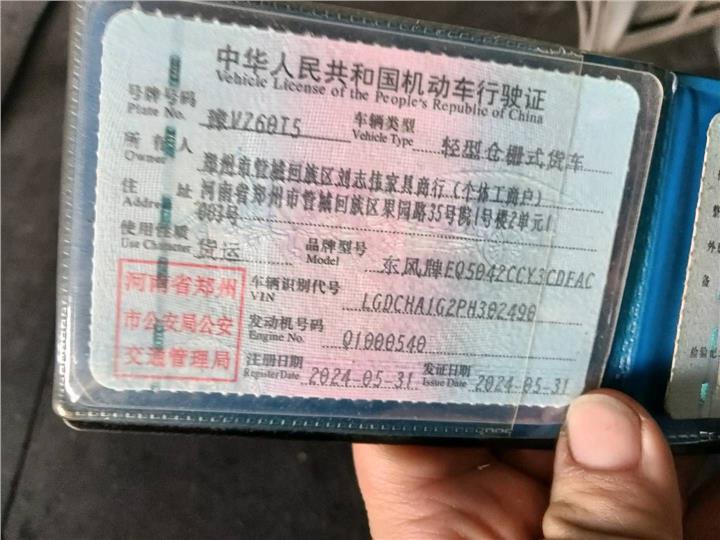 中华人民共和国机动车行驶证
Vehicle License of the People's Republic of China
号牌号码 豫VZ60T5 车辆类型 轻型仓栅式货车
Plate No. Vehicle Type
所有人 郑州市管城回族区刘志伟家具商行(个体工商户)
Owner
住址 河南省郑州市管城回族区果园路35号院1号楼2单元1
Address 003号
使用性质 货运 品牌型号 东风牌EQ5042CCY3CDFAC
Use Character Model
河南省郑州
市公安局公安
交通管理局
车辆识别代号 LGDCHA1G2PH302490
VIN
发动机号码 Q1000540
Engine No.
注册日期 2024-05-31 发证日期 2024-05-31
Register Date Issue Date